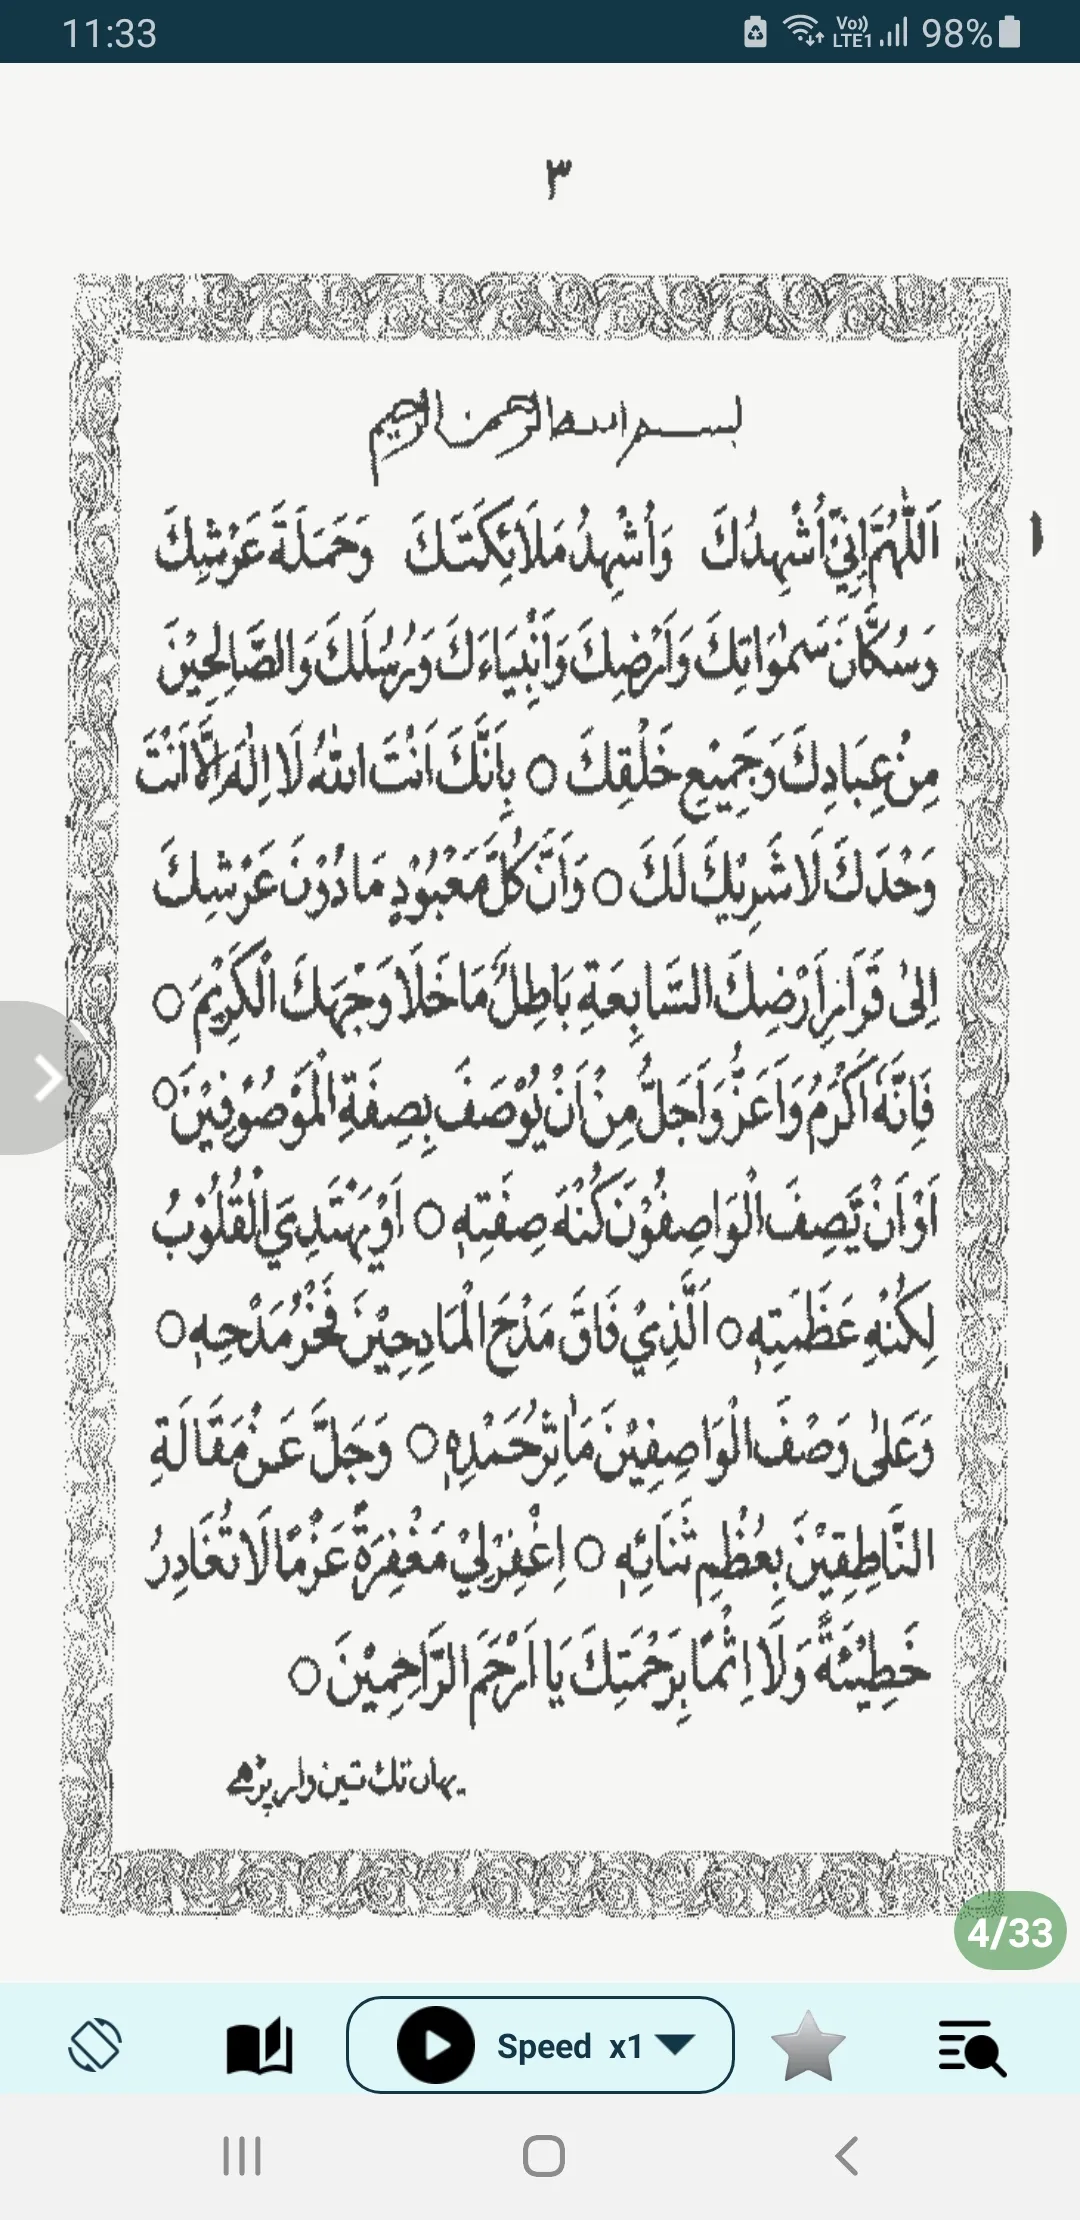 11:33
Vo)) LTE1 98%
٣
بسم الله الرحمن الرحيم
اَللّٰهُمَّ اِنِّيْ اُشْهِدُكَ وَاُشْهِدُ مَلَائِكَتَكَ وَحَمَلَةَ عَرْشِكَ
١
وَسُكَّانَ سَمٰوَاتِكَ وَاَرْضِكَ وَاَنْبِيَاءَكَ وَرُسُلَكَ وَالصَّالِحِيْنَ
مِنْ عِبَادِكَ وَجَمِيْعِ خَلْقِكَ ○ بِاَنَّكَ اَنْتَ اللهُ لَا اِلٰهَ اِلَّا اَنْتَ
وَحْدَكَ لَا شَرِيْكَ لَكَ ○ وَاَنَّ كُلَّ مَعْبُوْدٍ مَا دُوْنَ عَرْشِكَ
اِلىٰ قَرَارِ اَرْضِكَ السَّابِعَةِ بَاطِلٌ مَا خَلَا وَجْهَكَ الْكَرِيْمَ ○
فَاِنَّهٗ اَكْرَمُ وَاَعَزُّ وَاَجَلُّ مِنْ اَنْ يُوْصَفَ بِصِفَةِ الْمَوْصُوْفِيْنَ ○
اَوْ اَنْ يَّصِفَ الْوَاصِفُوْنَ كُنْهَ صِفَتِهٖ ○ اَوْ يَهْتَدِيَ الْقُلُوْبُ
لِكُنْهِ عَظَمَتِهٖ ○ اَلَّذِيْ فَاقَ مَدْحَ الْمَادِحِيْنَ فَخْرُ مَدْحِهٖ ○
وَعَلىٰ وَصْفَ الْوَاصِفِيْنَ مَاٰثِرُ حَمْدِهٖ ○ وَجَلَّ عَنْ مَقَالَةِ
النَّاطِقِيْنَ بِعُظْمِ ثَنَائِهٖ ○ اِغْفِرْ لِيْ مَغْفِرَةً عَزْمًا لَا تُغَادِرُ
خَطِيْئَةً وَلَا اِثْمًا بِرَحْمَتِكَ يَا اَرْحَمَ الرَّاحِمِيْنَ ○
يهاں تك تين وار پڑهے
4/33
Speed x1